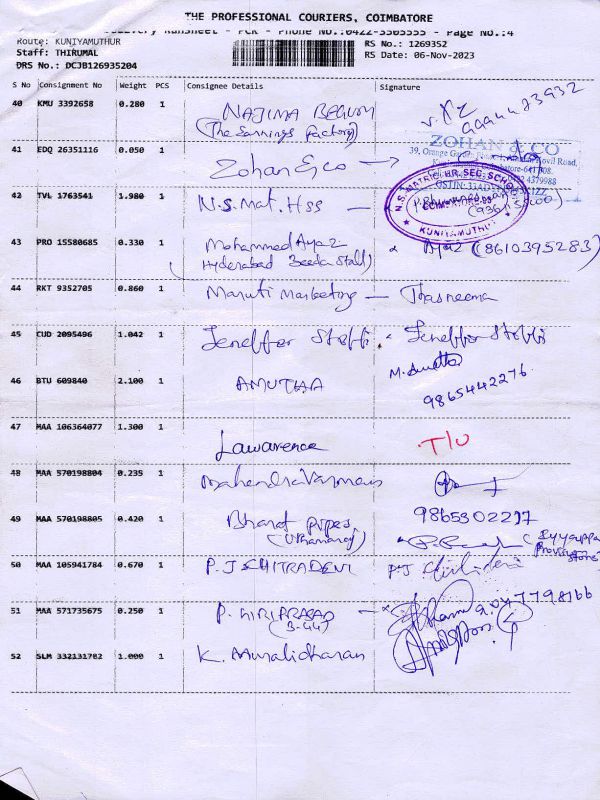 THE PROFESSIONAL COURIERS, COIMBATORE
Delivery Runsheet - PCR - Phone No.:0422-3505555 - Page No.:4
Route: KUNIYAMUTHUR
RS No.: 1269352
Staff: THIRUMAL
RS Date: 06-Nov-2023
DRS No.: DCJB126935204
S No Consignment No Weight PCS Consignee Details Signature
40 KMU 3392658 0.280 1 NAJIMA BEGUM
(The Earnings factory)
41 EDQ 26351116 0.050 1 Zohan & co →
ZOHAN & CO
42 TVL 1763541 1.980 1 N.S. Mat. Hss —
N.S. MATRIC. HR. SEC. SCHOOL
KUNIYAMUTHUR
43 PRO 15580685 0.330 1 Mohammed Ayaz Ayaz (8610395283)
(Hyderabad Beeda Stall)
44 RKT 9352705 0.860 1 Maruti Marketing — Thasneema
45 CUD 2095496 1.042 1 Jeneffer Steffi. Jeneffer Steffi
46 BTU 609840 2.100 1 AMUTHA M.
9865442276.
47 MAA 106364077 1.300 1 Lawarence T/U
48 MAA 570198804 0.235 1 Mahendra Varman
49 MAA 570198805 0.420 1 Bharat pipes 9865302217
(Iyyappa Provision Store)
50 MAA 105941784 0.670 1 P.J CHITRADEVI P.J Chitradevi
51 MAA 571735675 0.250 1 P. GIRIPRASAD — 9047798166
(B-44)
52 SLM 332131702 1.000 1 K. Muralidharan